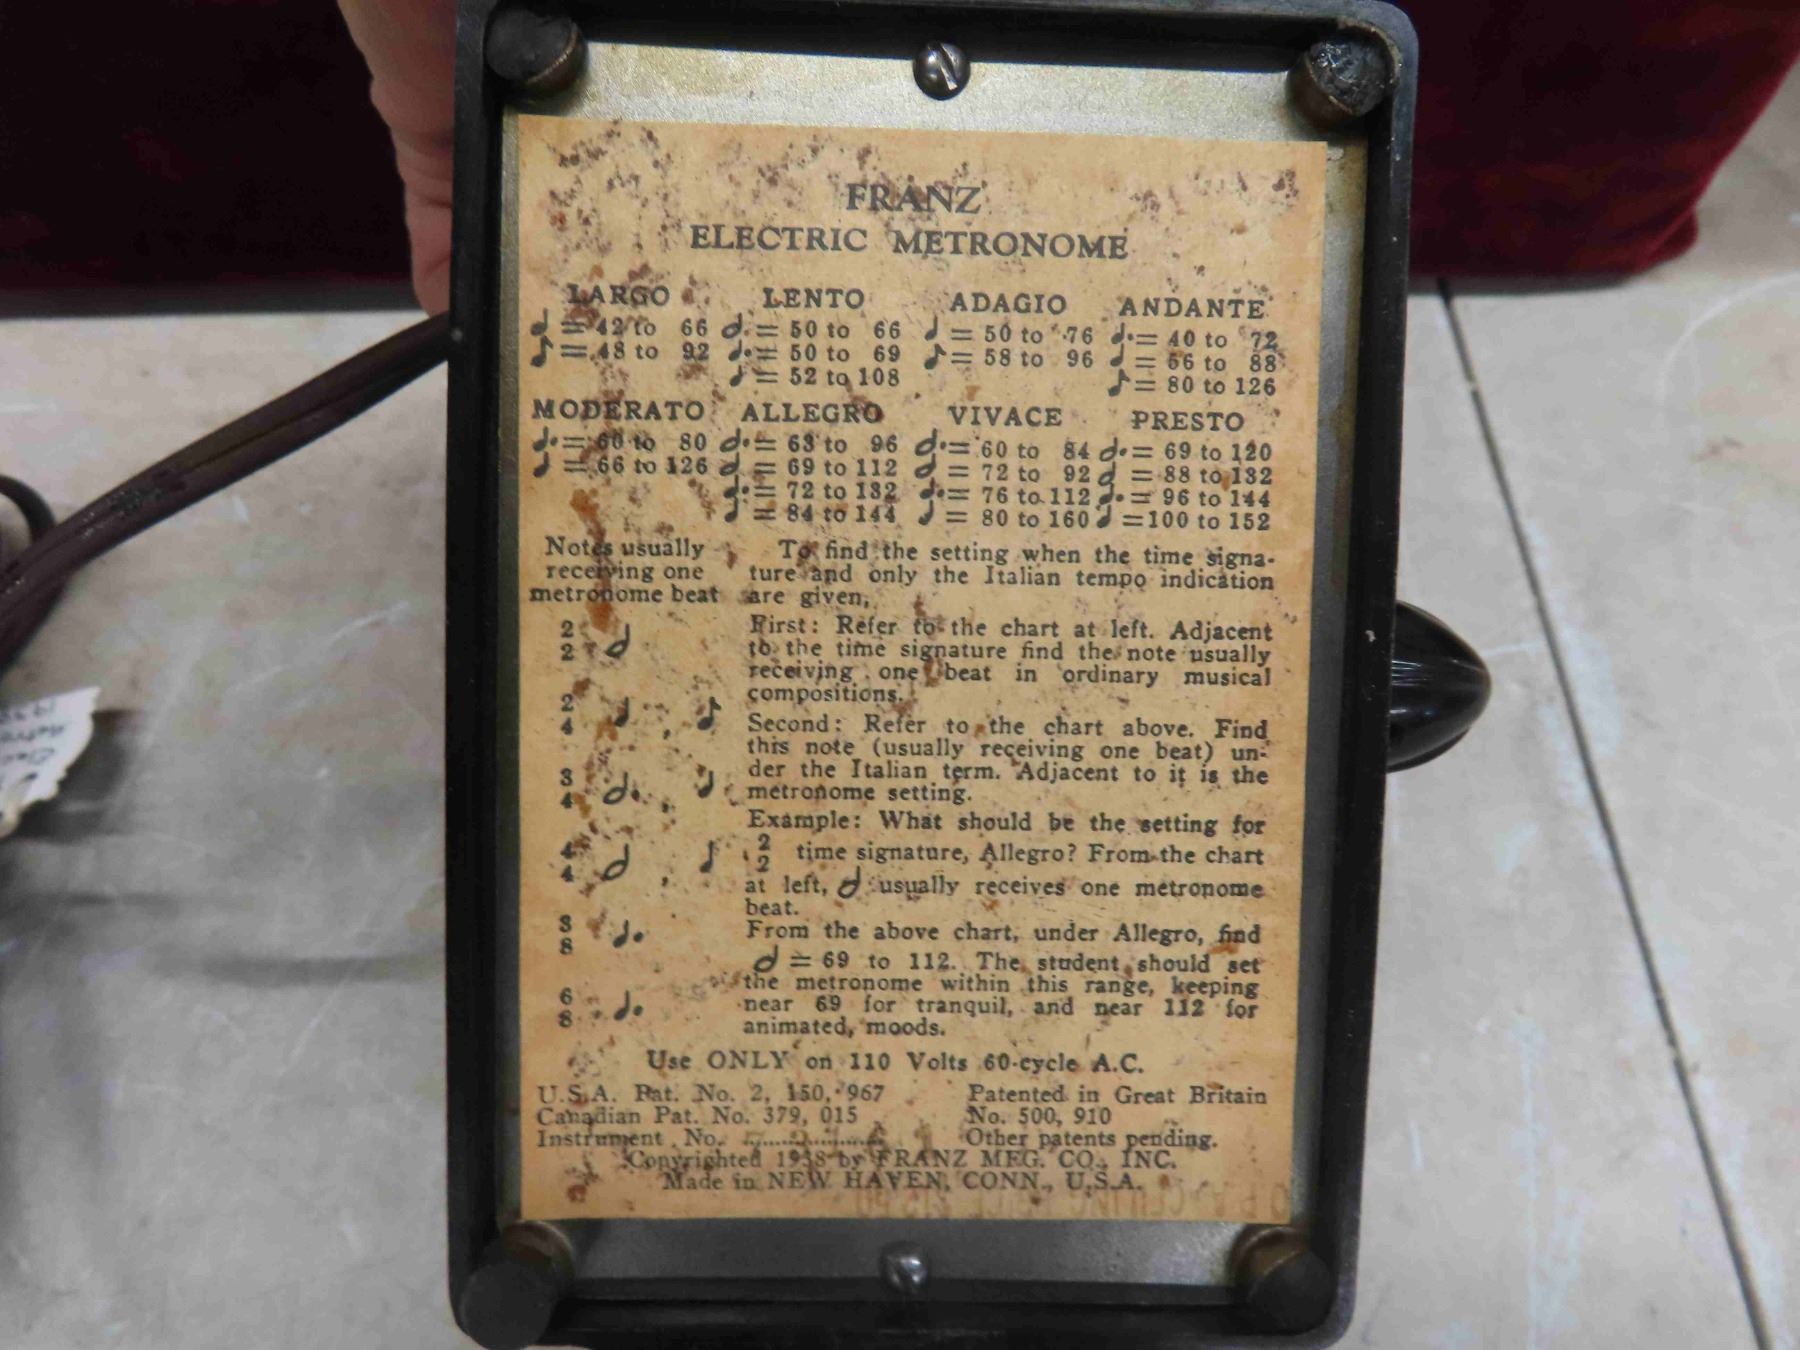 FRANZ
ELECTRIC METRONOME
LARGO LENTO ADAGIO ANDANTE
𝅗𝅥 = 42 to 66 𝅗𝅥. = 50 to 66 ♩ = 50 to 76 ♩. = 40 to 72
♪ = 48 to 92 ♩. = 50 to 69 ♪ = 58 to 96 ♩ = 56 to 88
♩ = 52 to 108 ♪ = 80 to 126
MODERATO ALLEGRO VIVACE PRESTO
♩. = 60 to 80 𝅗𝅥. = 63 to 96 𝅗𝅥. = 60 to 84 𝅗𝅥. = 69 to 120
♩ = 66 to 126 𝅗𝅥 = 69 to 112 𝅗𝅥 = 72 to 92 𝅗𝅥 = 88 to 132
♩. = 72 to 132 ♩. = 76 to 112 ♩. = 96 to 144
♩ = 84 to 144 ♩ = 80 to 160 ♩ = 100 to 152
Notes usually
receiving one
metronome beat
2
2 𝅗𝅥
2
4 ♩ , ♪
3
4 𝅗𝅥. , ♩
4
4 𝅗𝅥 , ♩
3
8 ♩.
6
8 ♩.
To find the setting when the time signa-
ture and only the Italian tempo indication
are given,
First: Refer to the chart at left. Adjacent
to the time signature find the note usually
receiving one beat in ordinary musical
compositions.
Second: Refer to the chart above. Find
this note (usually receiving one beat) un-
der the Italian term. Adjacent to it is the
metronome setting.
Example: What should be the setting for
2
2 time signature, Allegro? From the chart
at left, 𝅗𝅥 usually receives one metronome
beat.
From the above chart, under Allegro, find
𝅗𝅥 = 69 to 112. The student should set
the metronome within this range, keeping
near 69 for tranquil, and near 112 for
animated, moods.
Use ONLY on 110 Volts 60-cycle A.C.
U.S.A. Pat. No. 2, 150, 967 Patented in Great Britain
Canadian Pat. No. 379, 015 No. 500, 910
Instrument No. Other patents pending.
Copyrighted 1938 by FRANZ MFG. CO., INC.
Made in NEW HAVEN, CONN., U.S.A.